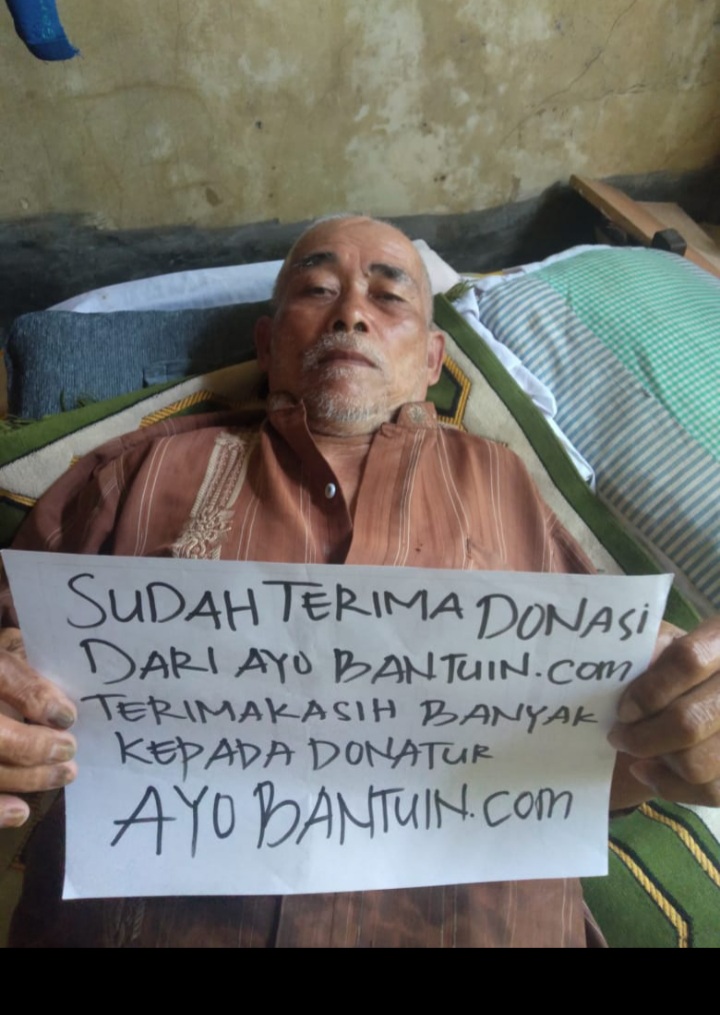 SUDAH TERIMA DONASi
DARI AYO BANTUIN.com
TERIMAKASIH BANYAK
KEPADA DONATUR
AYO BANTUIN.com